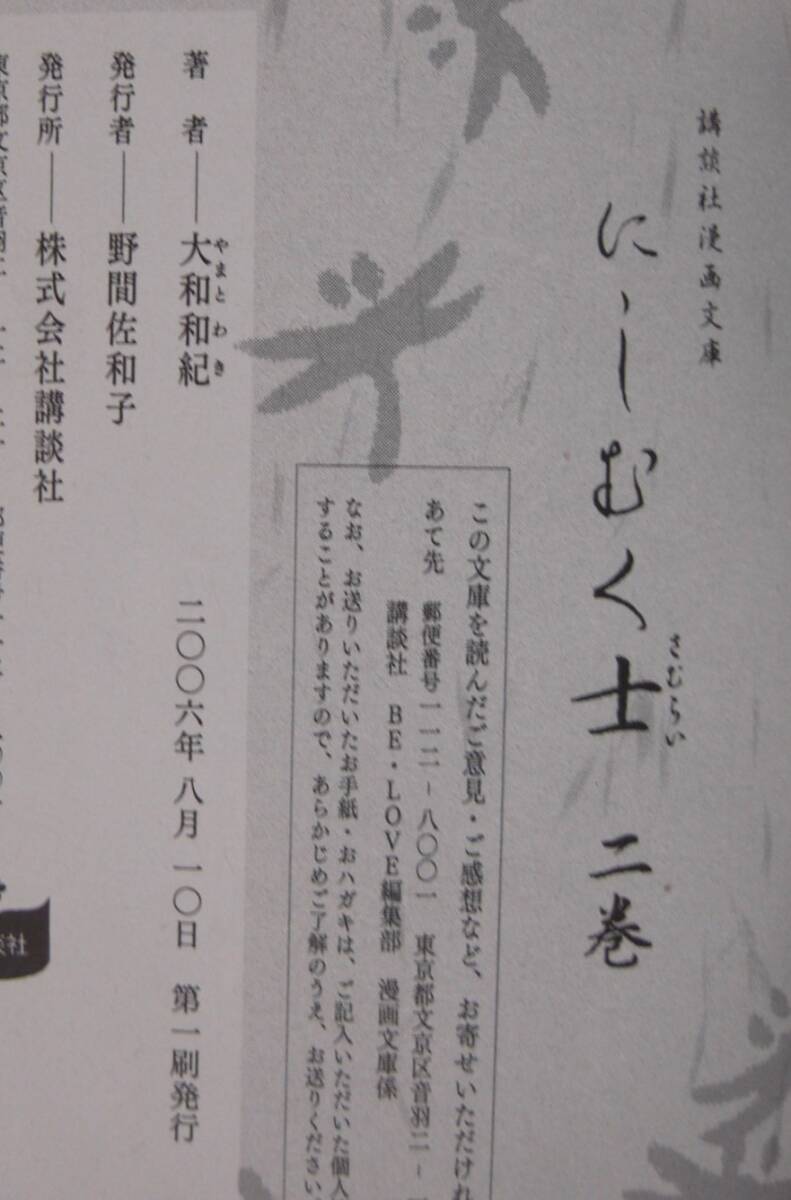 講談社漫画文庫
にしむく士 二巻
さむらい
この文庫を読んだご意見・ご感想など、お寄せいただけれ
あて先 郵便番号一一二-八〇〇一 東京都文京区音羽二-
講談社 BE・LOVE編集部 漫画文庫係
なお、お送りいただいたお手紙・おハガキは、ご記入いただいた個人
することがありますので、あらかじめご了解のうえ、お送りください。
二〇〇六年八月一〇日 第一刷発行
著者——大和和紀
やまとわき
発行者——野間佐和子
発行所——株式会社講談社
東京都文京区音羽二
談社